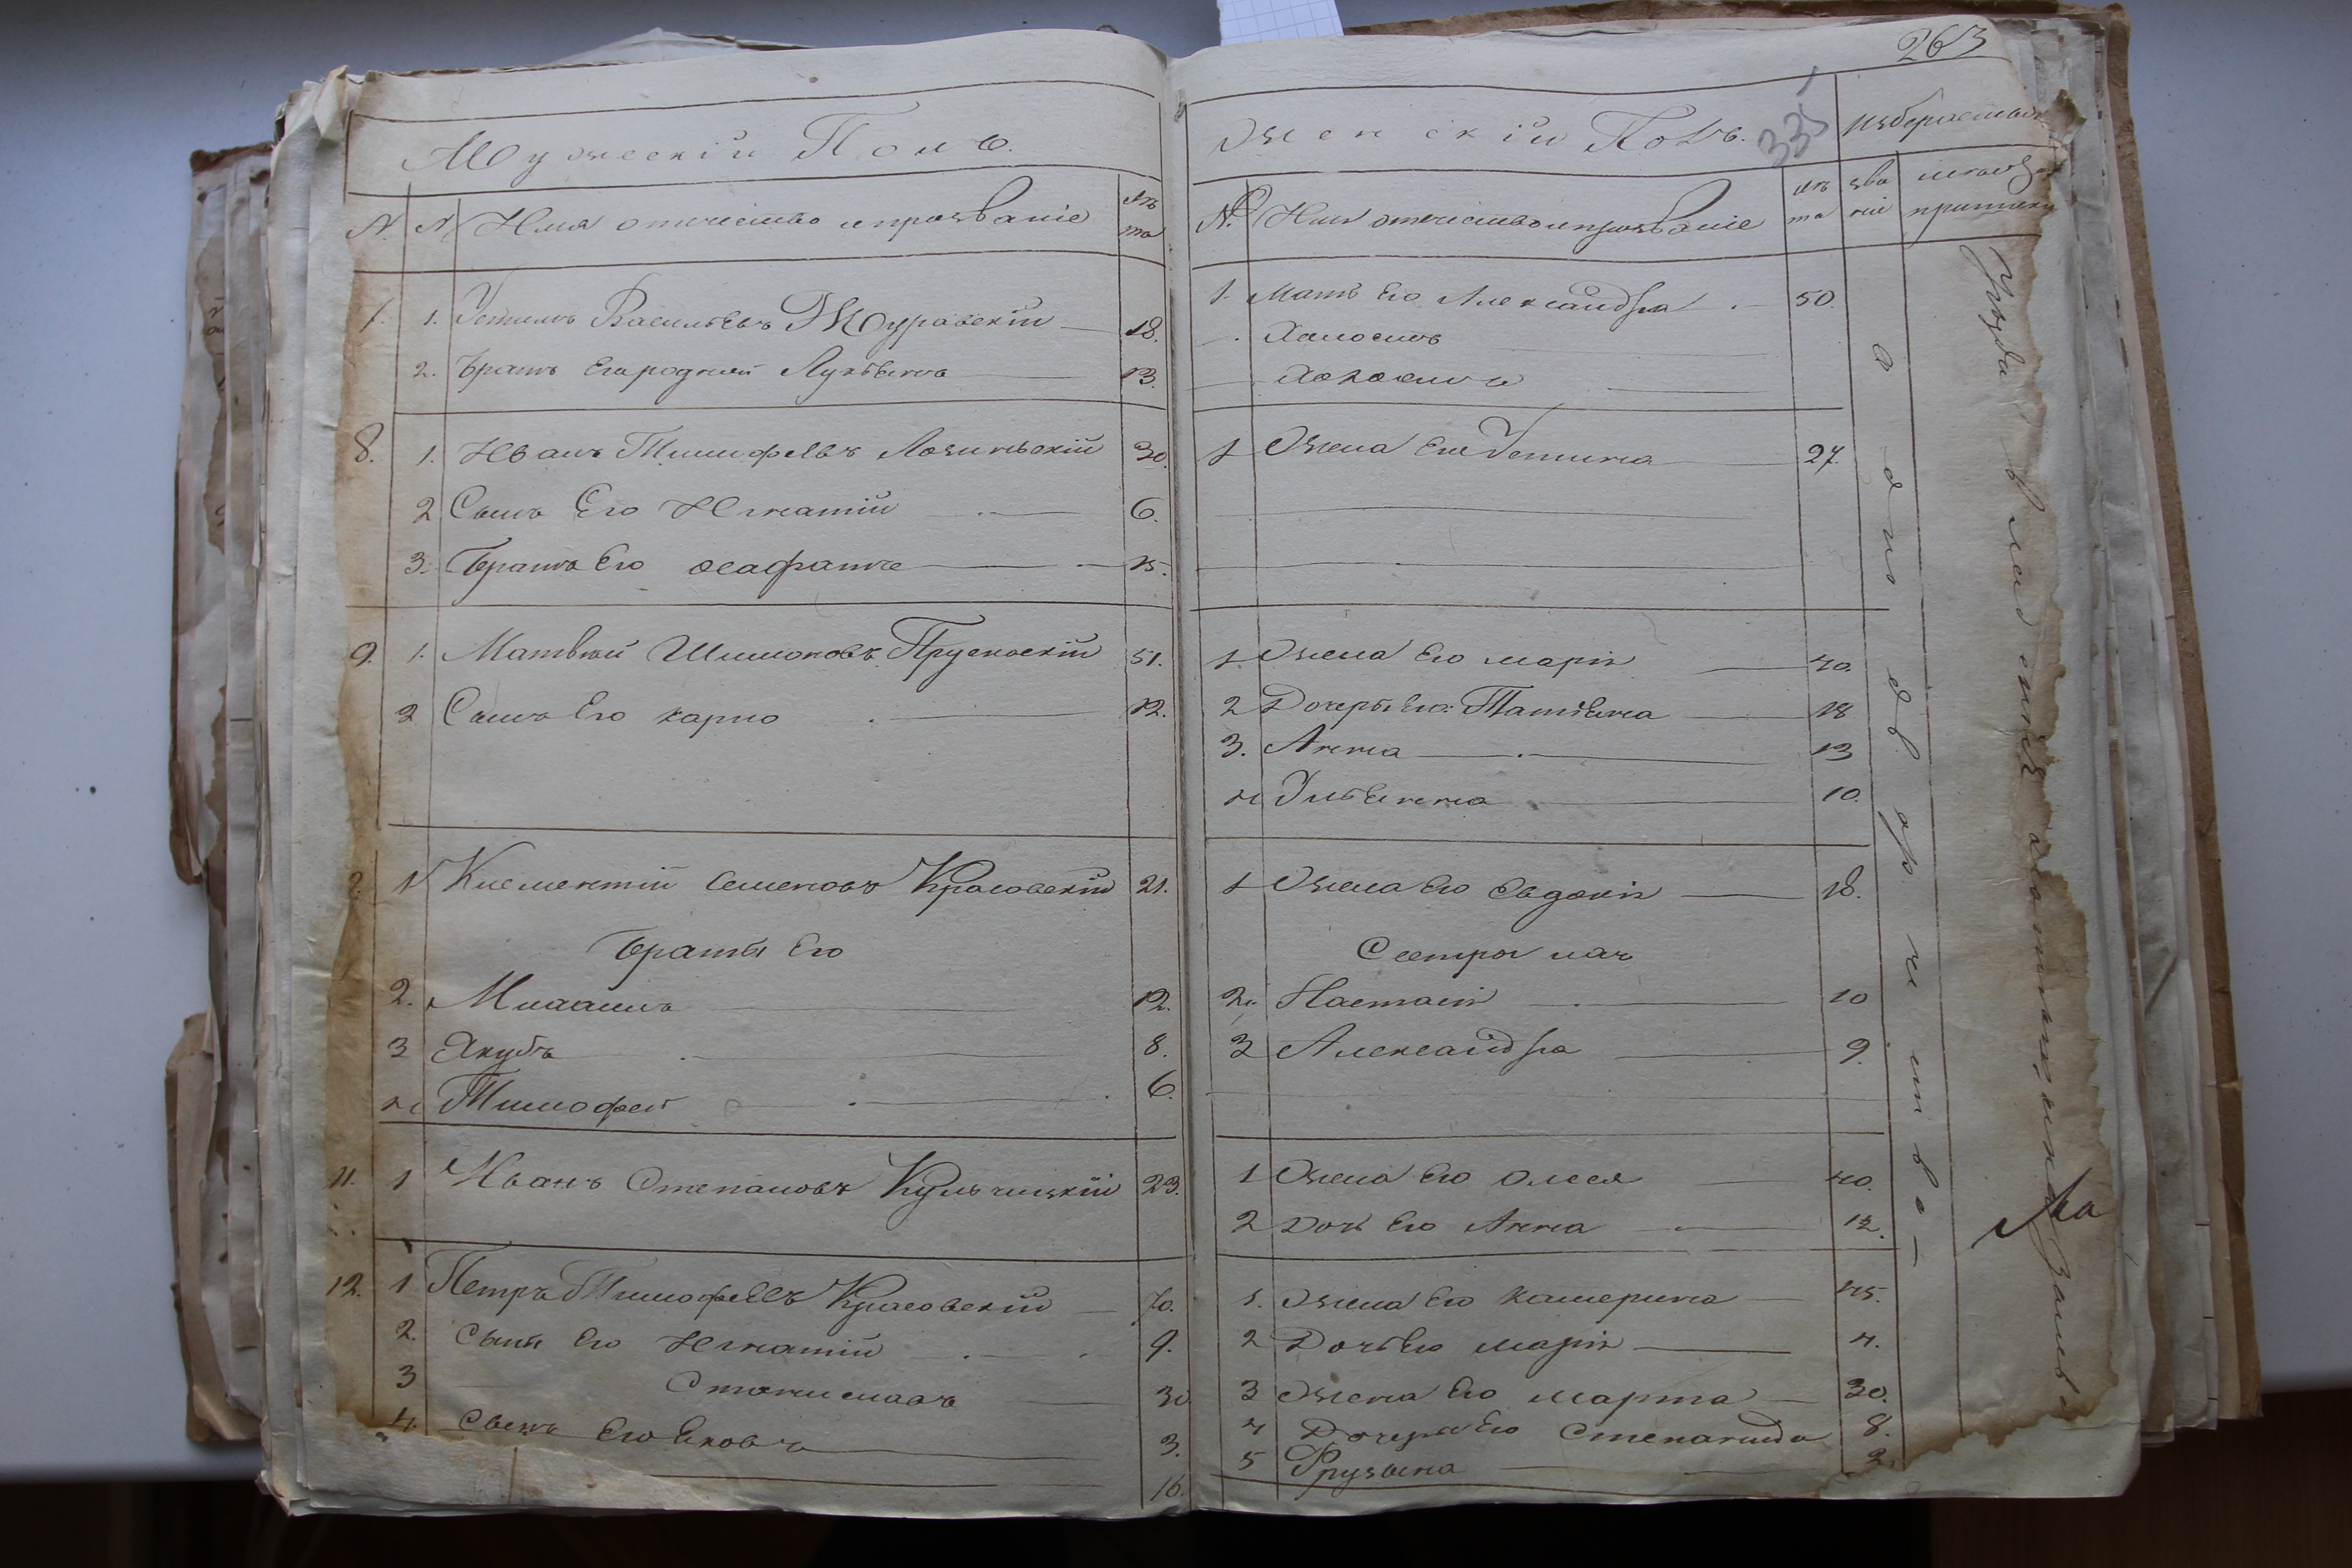 Мужескій Полъ.
№ № Имя отечество и прозваніе лѣта
7. 1. Устимъ Васильевъ Журавскій 18.
2. Братъ Его родной Лукьянъ 13.
8. 1. Иванъ Тимофѣевъ Лозинскій 30.
2 Сынъ Его Игнатій 6.
3. Братъ Его 15.
9. 1. Матвѣй Шимоновъ Прусновскій 51.
2 Сынъ Его Карпо 12.
1 Клементій Семеновъ Красовскій 21.
Браты Его
2. 12.
3 Якубъ 8.
4 Тимофей 6.
11. 1 Иванъ Степановъ Кульчицкій 23.
12. 1 Петръ Тимофѣевъ Красовскій 70.
2. Сынъ Его Игнатій 9.
3 Станиславъ 30
4. Сынъ Его Яковъ 3.
16.
263
335
Женскій Полъ. избираемые
№ Имя отечество и прозваніе лѣта званіе
1. Мать Его Александра 50.
Холостъ
Холостъ
1 Жена Его Устина 27.
1 Жена Его Марія 40.
2 Дочеры Его Татіяна 18
3. Анна 13
4 Ульяна 10.
1 Жена Его Евдокія 18.
Сестры
2. Настасія 10
3 Александра 9.
1 Жена Его Олеся 40.
2 Дочь Его Анна 12.
1. Жена Его Катерина 45.
2 Дочь Его Марія 4.
3 Жена Его Марта 30.
4 Дочеры Его Степанида 8.
5 Фрузына 2.
о дворянства